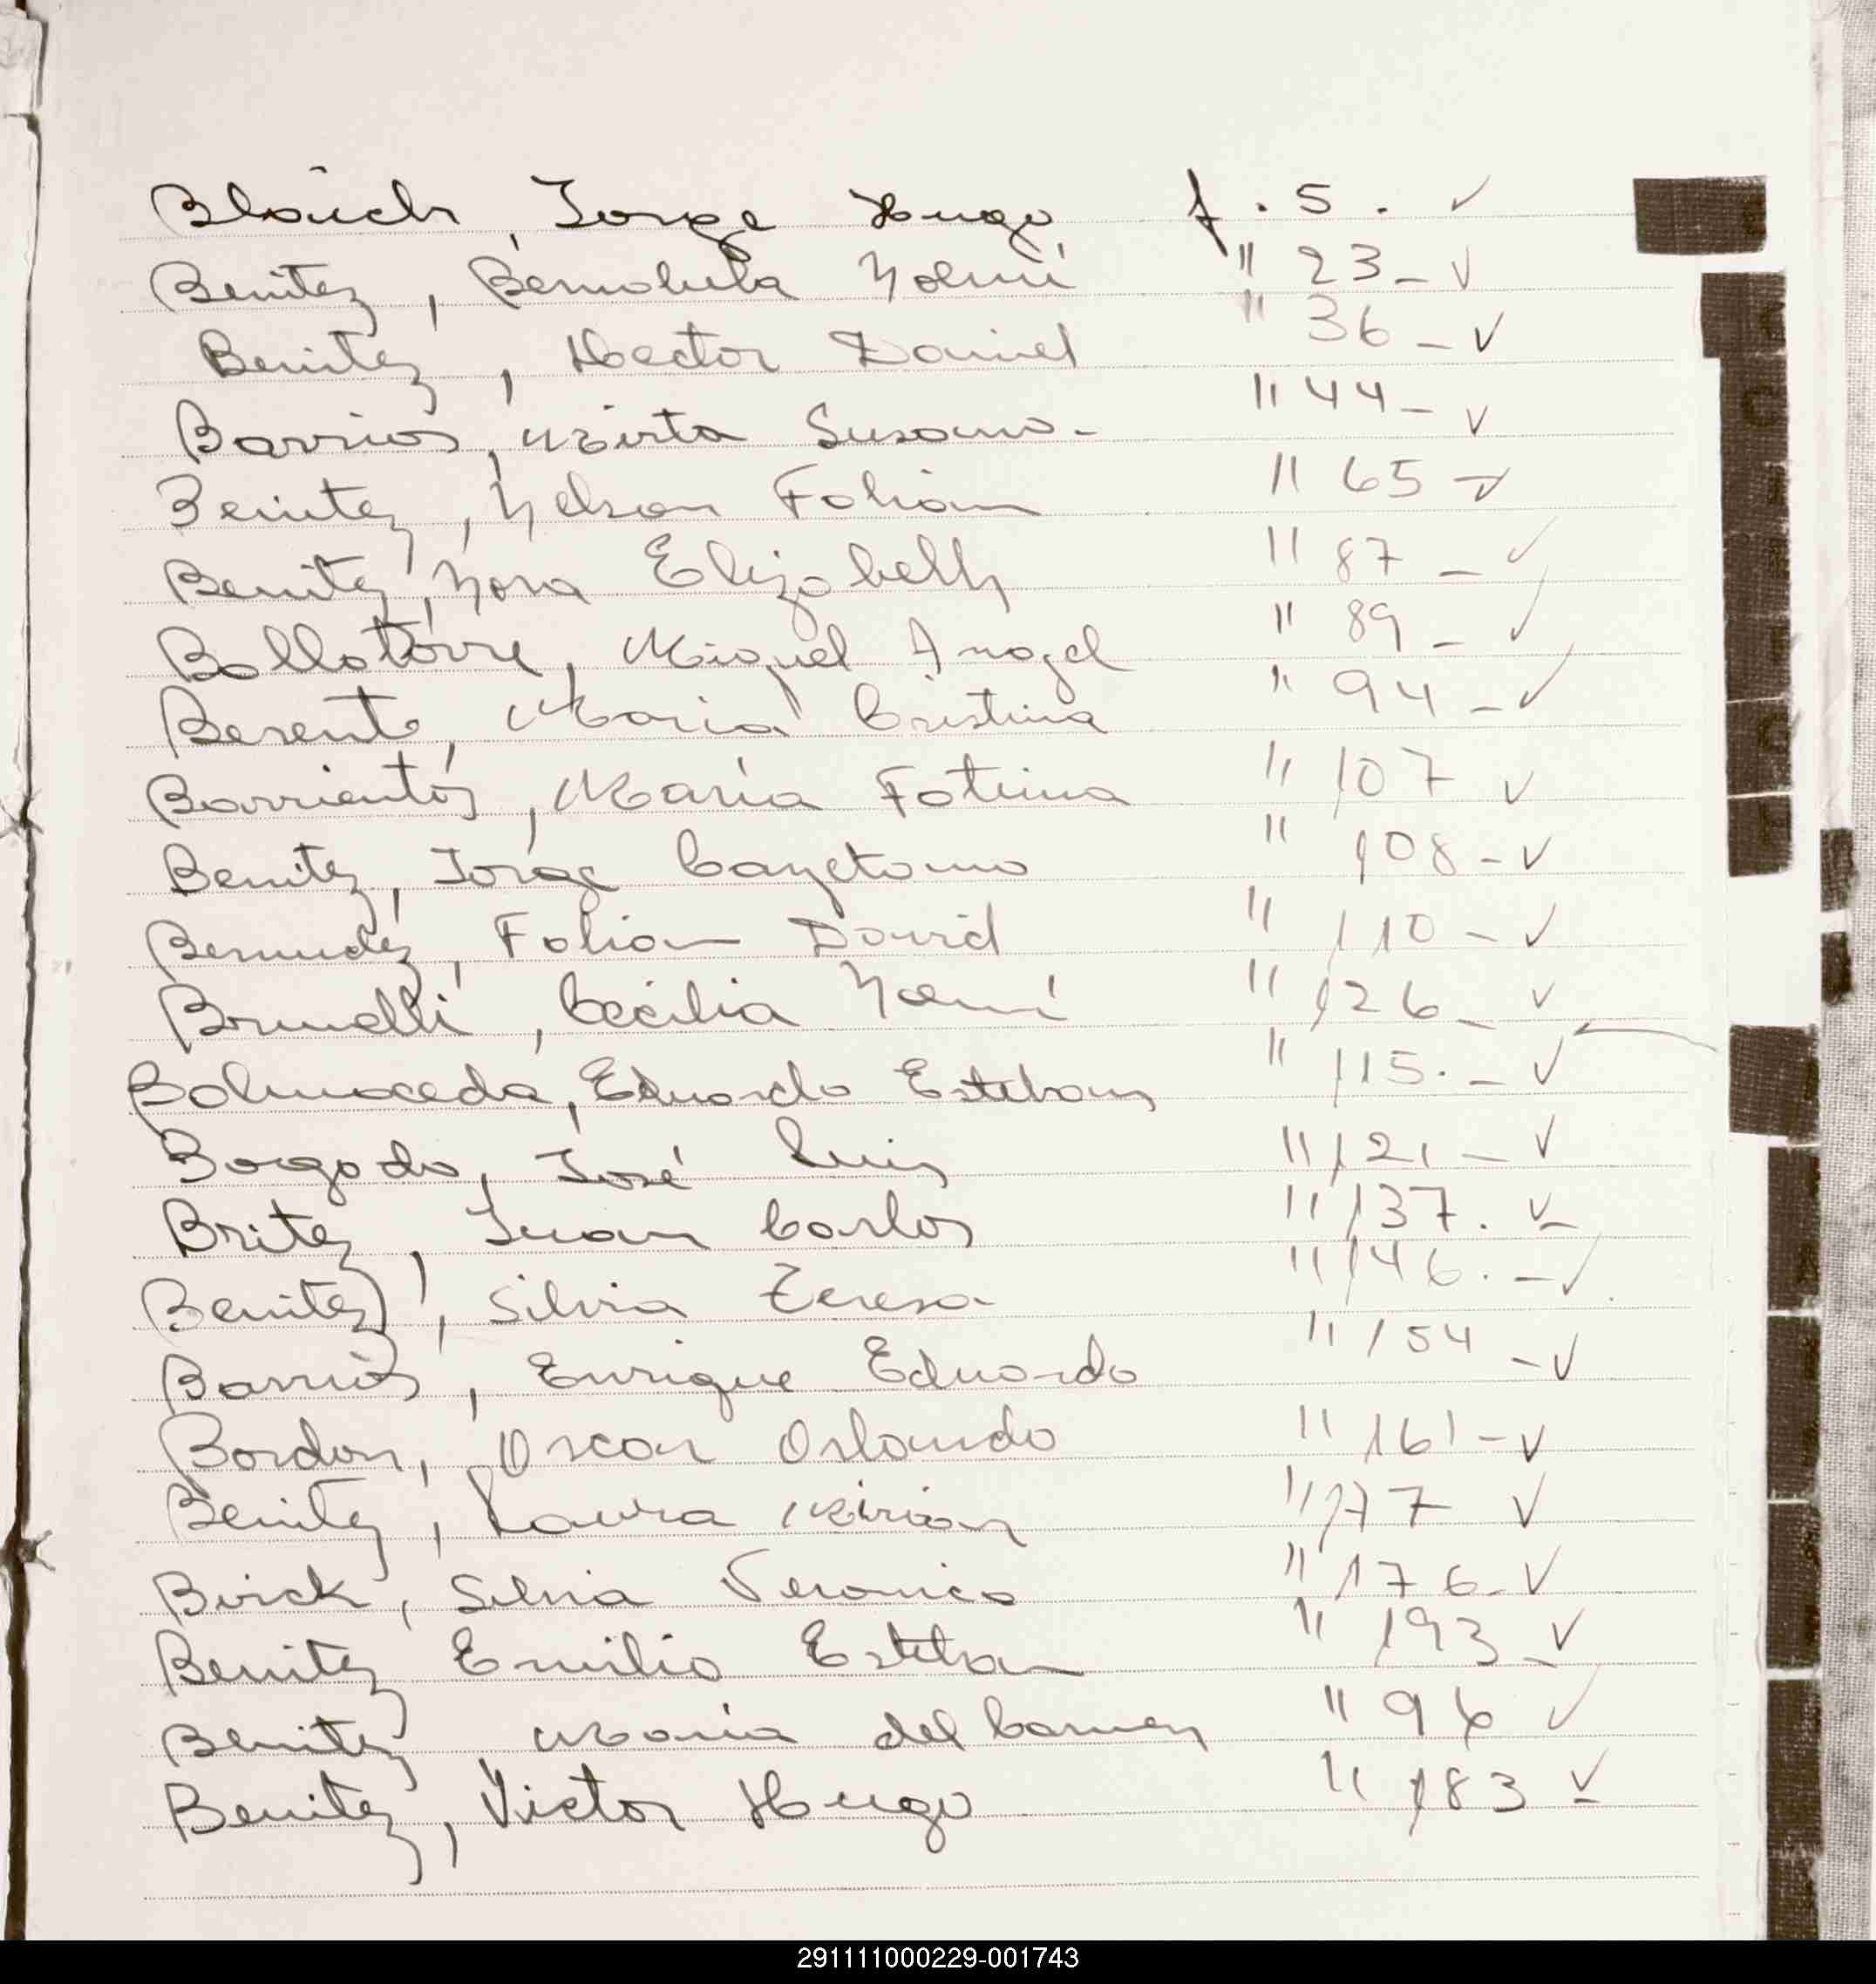 Blauch, Jorge Hugo f. 5. ✓
Benitez, Bernabela Noemí " 23 - ✓
Benitez, Hector Daniel " 36 - ✓
Barrios, Mirta Susana - " 44 - ✓
Benitez, Nelson Fabian " 65 - ✓
Benitez, Nora Elizabeth " 87 - ✓
Ballatorre, Miguel Angel " 89 - ✓
Berento, Maria Cristina " 94 - ✓
Barrientos, María Fatima " 107 ✓
Benitez, Jorge Cayetano " 108 - ✓
Bermudez, Fabian David " 110 - ✓
Brunelli, Cecilia Noemí " 126 - ✓
Balmaceda, Eduardo Esteban " 115. - ✓
Borgado, José Luis " 121 - ✓
Britez, Juan Carlos " 137. ✓
Benitez, Silvia Teresa " 146. - ✓
Barrios, Enrique Eduardo " 154 - ✓
Bordon, Oscar Orlando " 161 - ✓
Benitez, Laura Mirian " 177 ✓
Birck, Silvia Veronica " 176 - ✓
Benitez Emilio Esteban " 193 - ✓
Benitez, Maria del Carmen " 96 ✓
Benitez, Victor Hugo " 183 ✓
291111000229-001743